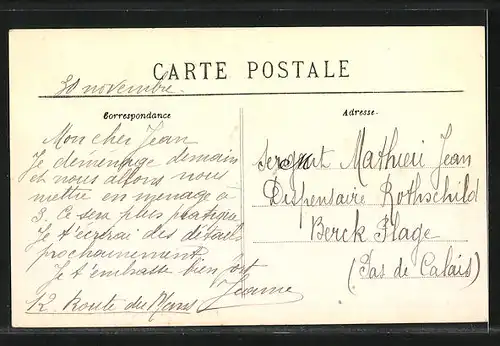 CARTE POSTALE
30 novembre.
Correspondance
Mon cher Jean
Je déménage demain
et nous allons nous
mettre en menage à
3. Ce sera plus pratique
Je t'écrirai des détails
prochainement
Je t'embrasse bien fort
Jeanne
12 Route du Mans
Adresse
Sergent Mathieu Jean
Dispensaire Rothschild
Berck Plage
(Pas de Calais)